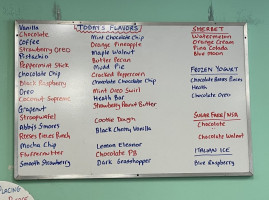 Vanilla
Chocolate
Coffee
Strawberry Oreo
Pistachio
Peppermint Stick
Chocolate Chip
Black Raspberry
Oreo
Coconut Supreme
Grapenut
Stroopwafel
Abby's Smores
Reeses Pieces Punch
Mocha Chip
Fluffernutter
Smooth Strawberry
TODAY'S FLAVORS
Mint Chocolate Chip
Orange Pineapple
Maple Walnut
Butter Pecan
Mudd Pie
Cracked Peppercorn
Chocolate Chocolate Chip
Mint Oreo Swirl
Heath Bar
Strawberry Peanut Butter
Cookie Dough
Black Cherry Vanilla
Lemon
Chocolate PB
Dark Grasshopper
SHERBET
Watermelon
Orange Cream
Pina Colada
Blue Moon
FROZEN YOGURT
Chocolate
Heath
Chocolate Oreo
SUGAR FREE / NSA
Chocolate
Chocolate Walnut
ITALIAN ICE
Blue Raspberry